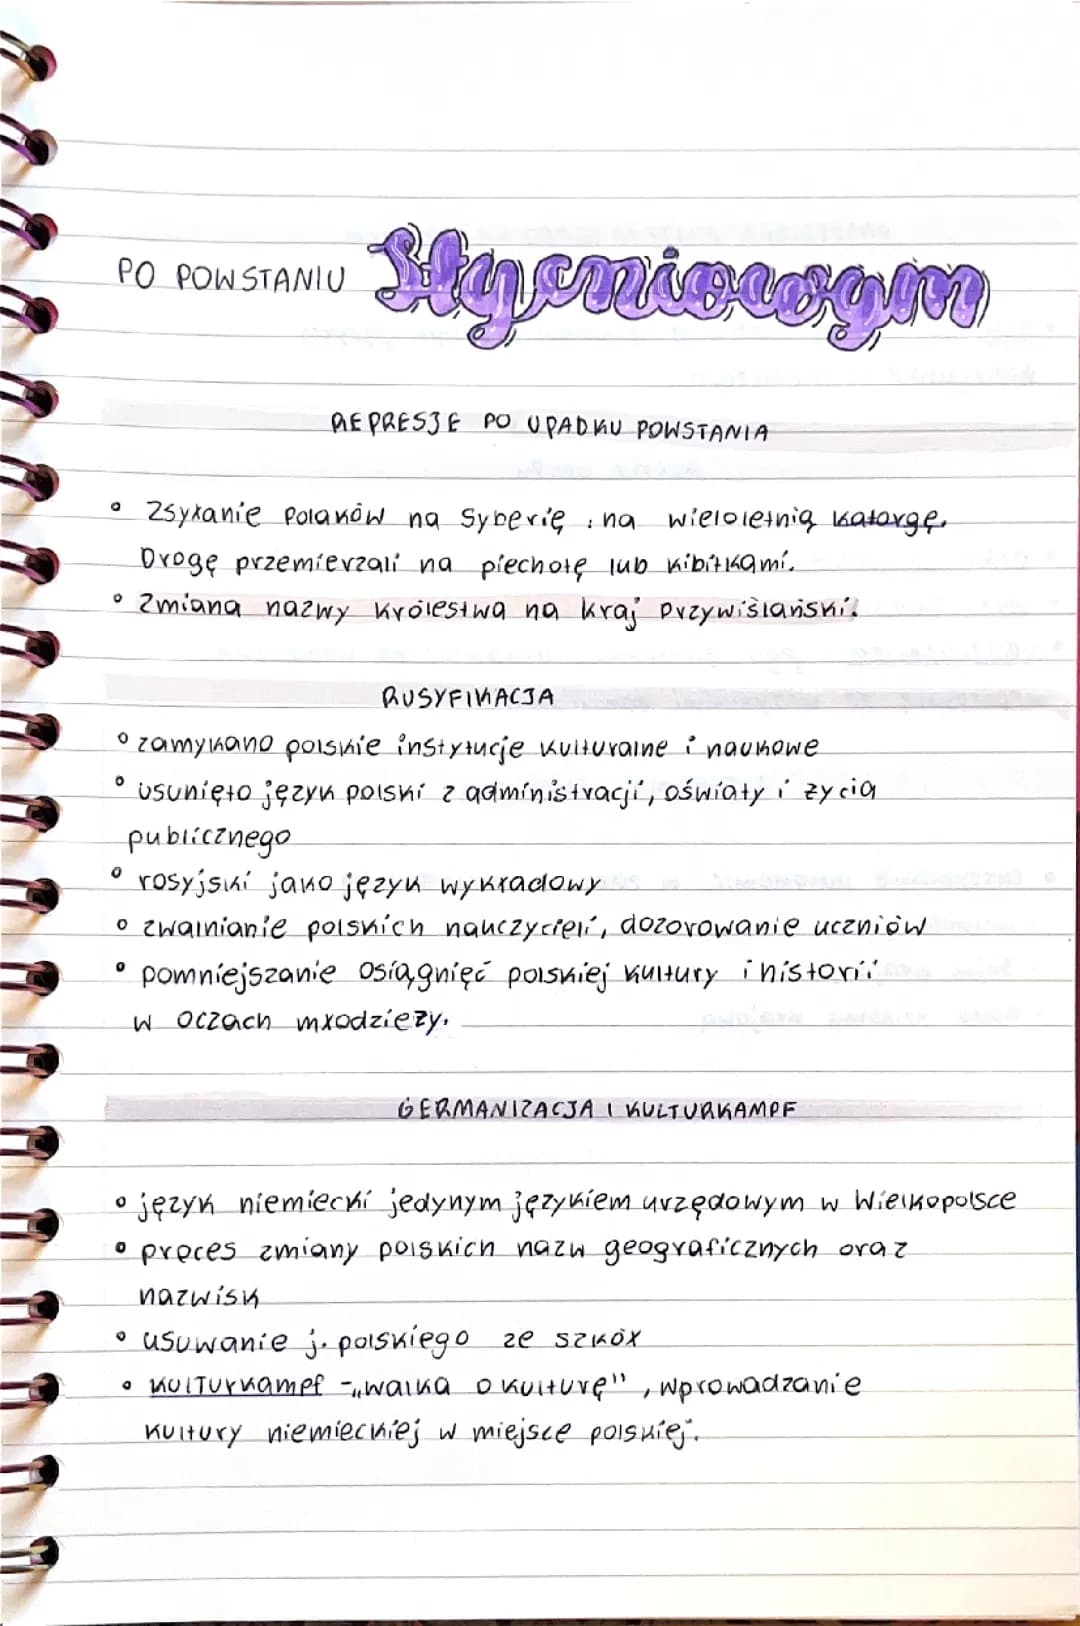 PO POWSTANIU Styczniowym
REPRESJE PO UPADKU POWSTANIA
• Zsyłanie Polaków na Syberię i na wieloletnią katorgę.
Drogę przemierzali na piechotę lub kibitkami.
• Zmiana nazwy Królestwa na Kraj Przywiślański.
RUSYFIKACJA
• zamykano polskie instytucje kulturalne i naukowe
• usunięto język polski z administracji, oświaty i życia
publicznego
• rosyjski jako język wykładowy
• zwalnianie polskich nauczycieli, dozorowanie uczniów
• pomniejszanie osiągnięć polskiej kultury i historii
w oczach młodzieży.
GERMANIZACJA I KULTURKAMPF
• język niemiecki jedynym językiem urzędowym w Wielkopolsce
• proces zmiany polskich nazw geograficznych oraz
nazwisk
• usuwanie j. polskiego ze szkół
• Kulturkampf - „walka o kulturę", wprowadzanie
kultury niemieckiej w miejsce polskiej.